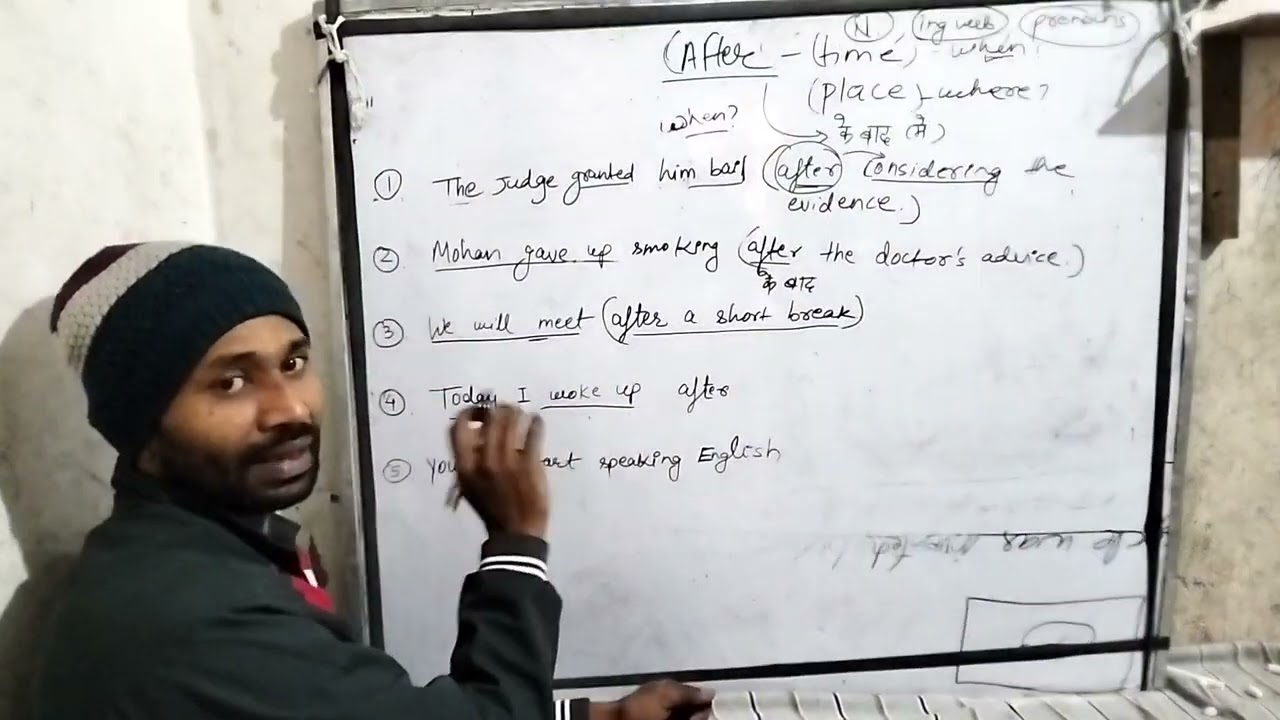 N. , ing verb pronouns
(After - (time) - when?
(place) - where?
when?
के बाद (में)
① The Judge granted him bail (after considering the
evidence.)
② Mohan gave up smoking (after the doctor's advice.)
के बाद
③ We will meet (after a short break)
④ Today I woke up after
⑤ speaking English